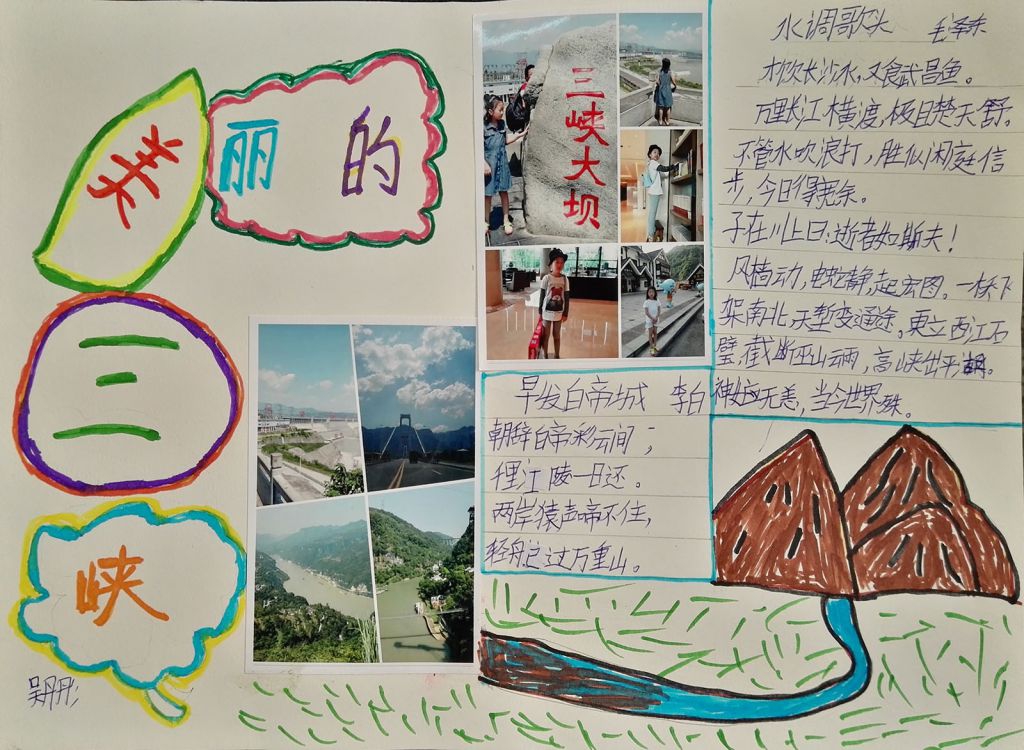 美丽的
三
峡
三峡大坝
水调歌头 毛泽东
才饮长沙水,又食武昌鱼。
万里长江横渡,极目楚天舒。
不管水吹浪打,胜似闲庭信
步,今日得宽余。
子在川上曰:逝者如斯夫!
风樯动,龟蛇静,起宏图。一桥飞
架南北,天堑变通途。更立西江石
壁,截断巫山云雨,高峡出平湖。
神女应无恙,当今世界殊。
早发白帝城 李白
朝辞白帝彩云间,
千里江陵一日还。
两岸猿声啼不住,
轻舟已过万重山。